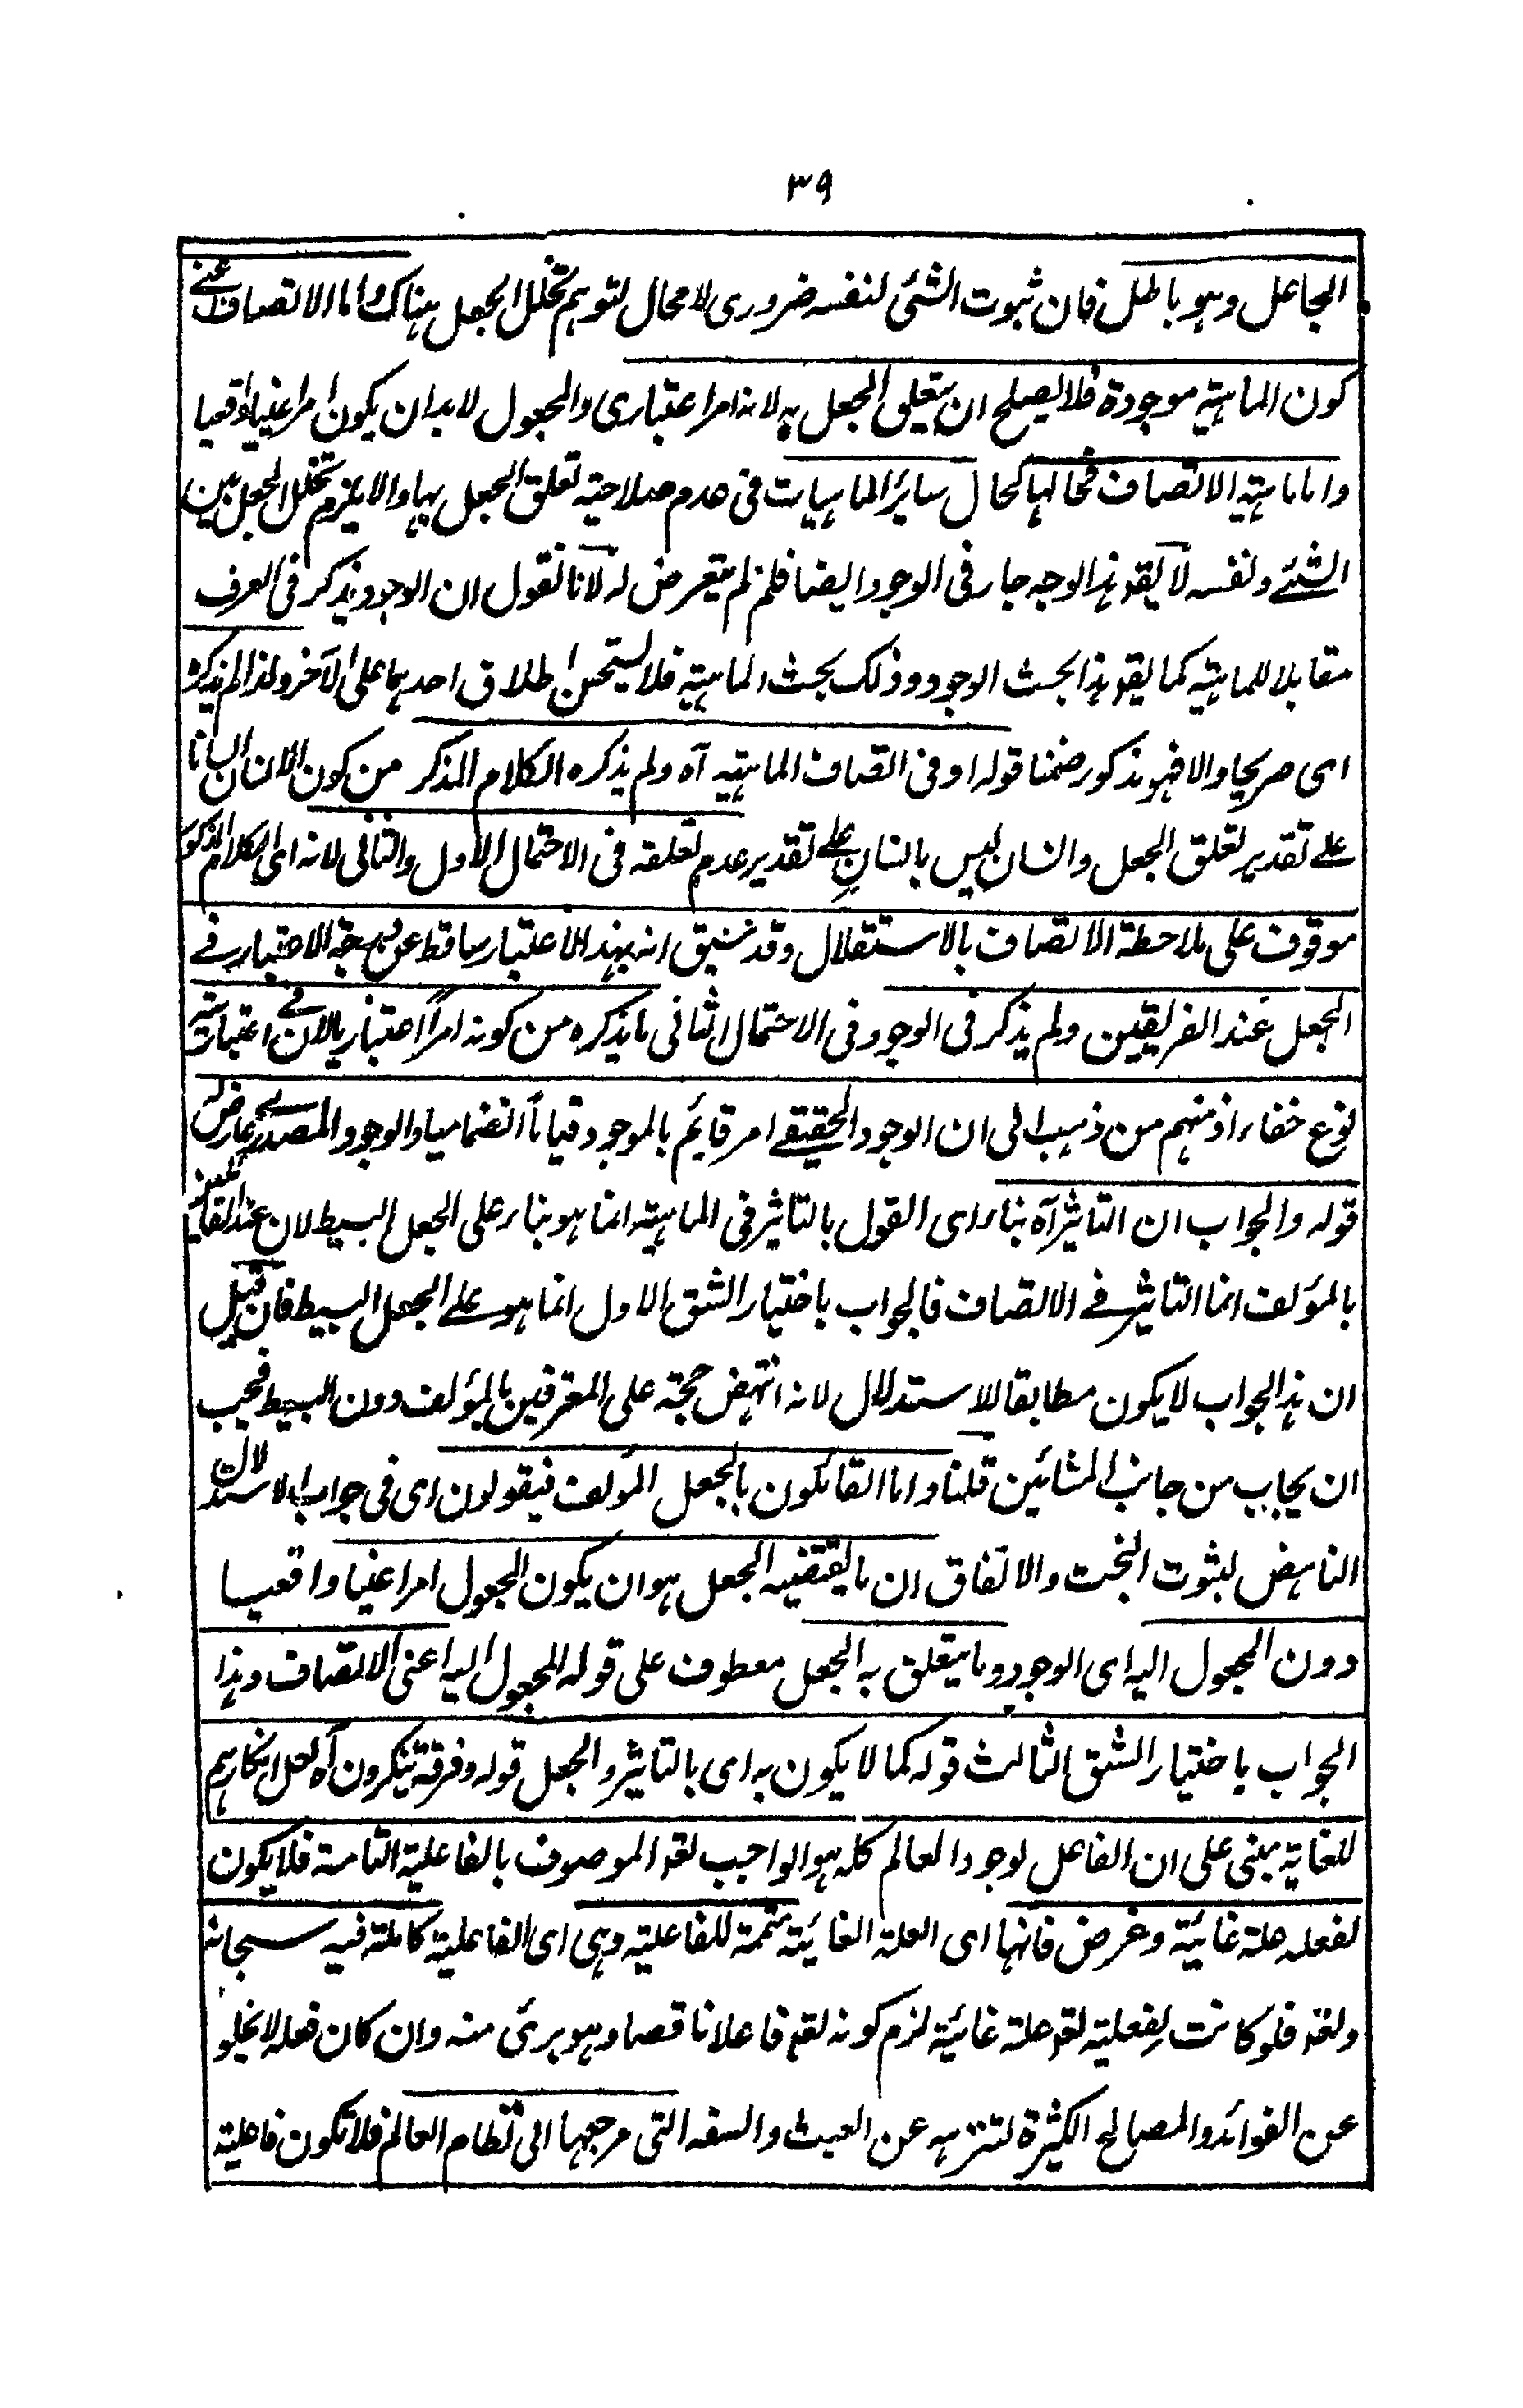 ٣٩
الجاعل وهو باطل فان ثبوت الشئ لنفسه ضرورى لا محال لتوهم تخلل الجعل هناك واما الاتصاف عنے
كون الماهية موجودة فلا يصلح ان يتعلق الجعل به لانه امر اعتبارى والمجعول لابد ان يكون امرا عينيا واقعيا
واما ماهية الاتصاف فحالها كحال ساير الماهيات فى عدم صلاحية تعلق الجعل بها والا يلزم تخلل الجعل بين
الشئے ونفسه لا يقه هذا الوجه جار فى الوجود ايضا فلم لم يتعرض له لانا نقول ان الوجود يذكر فى العرف
مقابلا للماهية كما يقه هذا بحث الوجود وذلك بحث الماهية فلا يستحسن اطلاق احدهما على الآخر ولذا لم يذكره
اى صريحا والا فهو مذكور ضمنا قوله او فى اتصاف الماهية آه ولم يذكره الكلام المذكر من كون الانسان انسانا
علے تقدير تعلق الجعل وانسان ليس بانسان علے تقدير عدم تعلقه فى الاحتمال الاول والثانى لانه اى الكلام المذكور
موقوف على ملاحظة الاتصاف بالاستقلال وقد سبق انه بهذا الاعتبار ساقط عن درجة الاعتبار فے
الجعل عند الفريقين ولم يذكر فى الوجود فى الاحتمال الثانى ما يذكره من كونه امراً اعتباريا لان فے اعتباريته
نوع خفاء اذ منهم من ذهب الى ان الوجود الحقيقے امر قايم بالموجود قياماً انضماميا والوجود المصدرے عارض له
قوله والجواب ان التاثير آه بناء اى القول بالتاثير فى الماهية انما هو بناء على الجعل البسيط لان عند القائلين
بالمؤلف انما التاثير فے الاتصاف فالجواب باختيار الشق الاول انما هو علے الجعل البسيط فان قيل
ان هذا الجواب لا يكون مطابقا للاستدلال لانه انتهض حجة على المعترفين بالمؤلف دون البسيط فيجب
ان يجاب من جانب المشائين قلنا واما القائلون بالجعل المؤلف فيقولون اى فى جواب الاستدلال
الناهض لثبوت البخت والاتفاق ان ما يقتضيه الجعل هو ان يكون المجعول امرا عينيا واقعيا
دون المجعول اليه اى الوجود وما يتعلق به الجعل معطوف على قوله المجعول اليه اعنى الاتصاف وهذا
الجواب باختيار الشق الثالث قوله كما لا يكون به اى بالتاثير والجعل قوله وفرقة ينكرون آه لعل انكارهم
للغاية مبنى على ان الفاعل لوجود العالم كله هو الواجب تعه الموصوف بالفاعلية التامة فلا يكون
لفعله علة غائية وغرض فانها اى العلة الغائية متممة للفاعلية وهى اى الفاعلية كاملة فيه سبحانه
وتعه فلو كانت لفعليته تعه علة غائية لزم كونه تعه فاعلا ناقصا وهو برئ منه وان كان فعله لا يخلو
عن الفوائد والمصالح الكثيرة لتنزهه عن العبث والسفه التى مرجعها الى نظام العالم فلا تكون فاعلية